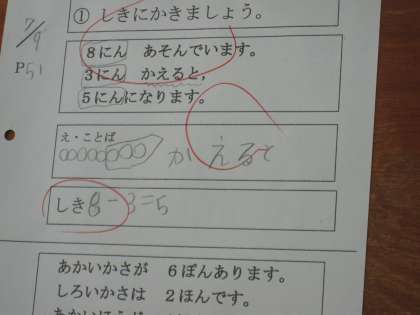 ① しきにかきましょう。
7/9
P51
8にん あそんでいます。
3にん かえると,
5にんになります。
え・ことば
かえると
しき 8-3=5
あかいかさが 6ぽんあります。
しろいかさは 2ほんです。